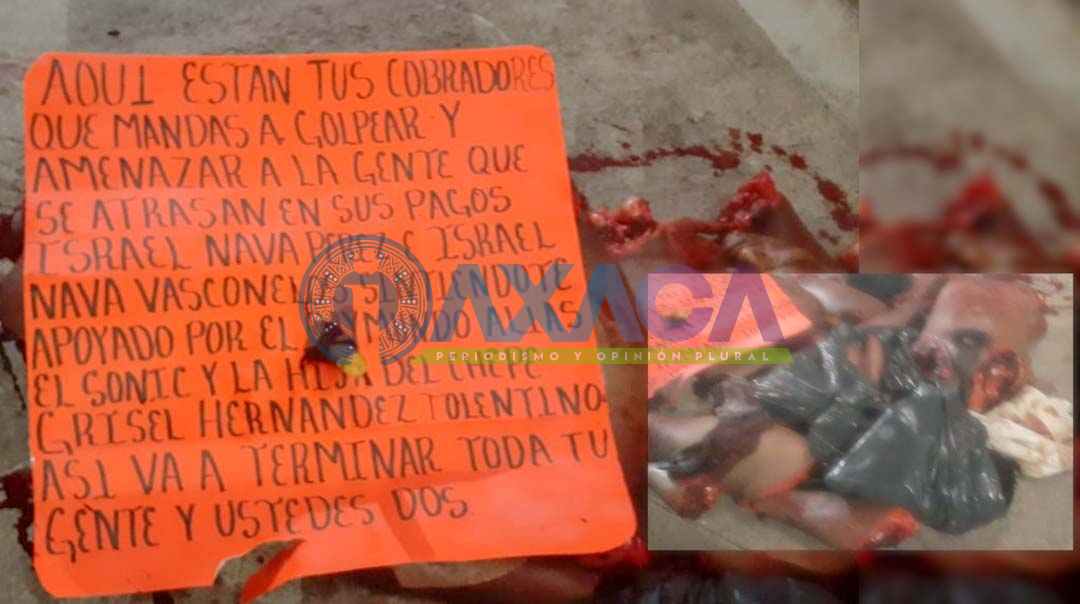 AQUI ESTAN TUS COBRADORES
QUE MANDAS A GOLPEAR Y
AMENAZAR A LA GENTE QUE
SE ATRASAN EN SUS PAGOS
ISRAEL NAVA PEREZ E ISRAEL
NAVA
APOYADO POR EL ALIAS
EL SONIC Y LA HIJA DEL CHEPE
GRISEL HERNANDEZ TOLENTINO.
ASI VA A TERMINAR TODA TU
GENTE Y USTEDES DOS
OAXACA
PERIODISMO Y OPINIÓN PLURAL